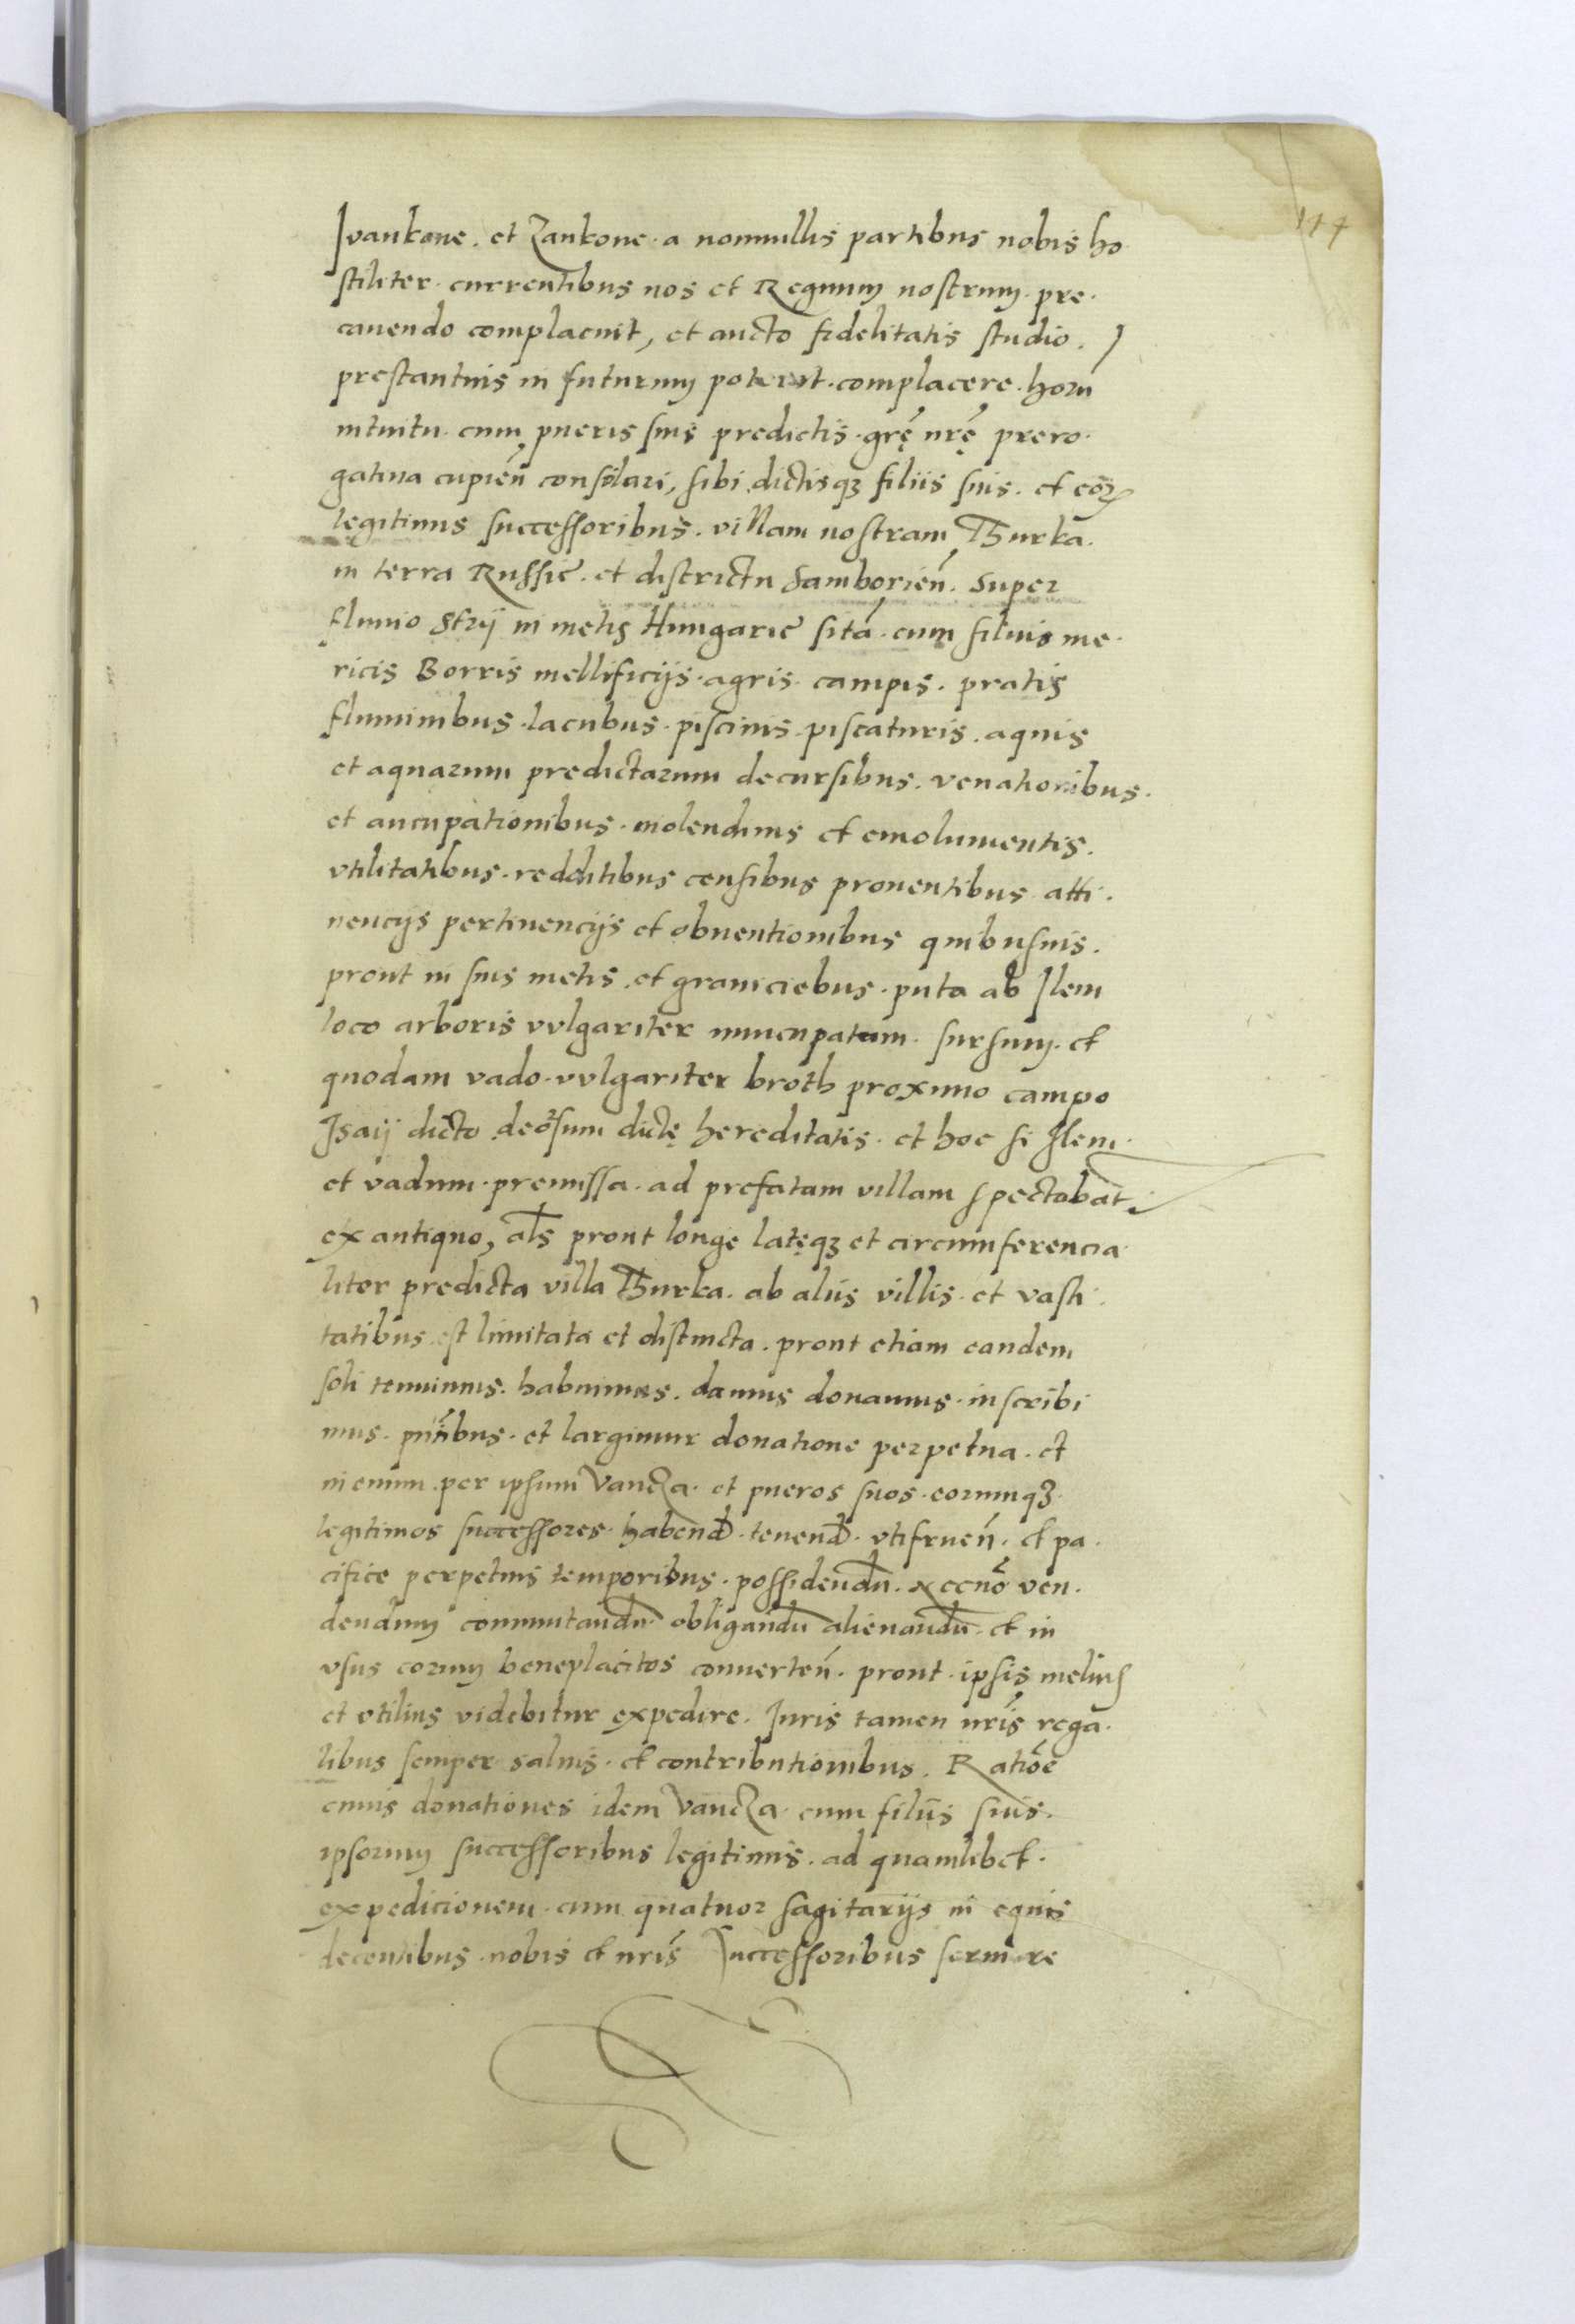 117
Jvankone. et Zankone. a nonnullis partibus nobis ho
stiliter. currentibus nos et Regnum nostrum. pre.
cauendo complacuit, et aucto fidelitatis studio.
prestantius in futurum poterit. complacere. horū
intuitu. cum pueris suis predictis. grę̄ nrę̄ prero.
gatiua cupien̄ consolari, sibi dictisqȝ filiis suis. et eoꝝ
legitimis successoribus. villam nostram Thurka.
in terra Russie. et districtu Samborien̄. super
fluuio Strij in metis Hungarie sitā. cum siluis me.
ricis Borris mellificijs. agris. campis. pratis
fluminibus. lacubus. piscinis. piscaturis. aquis
et aquarum predictarum decursibus. venationibus.
et aucupationibus. molendinis et emolumentis.
vtilitatibus. redditibus censibus prouentibus atti.
nencijs pertinencijs et obuentionibus quibusuis.
prout in suis metis. et graniciebus. puta ab Ilem
loco arboris vulgariter nuncupatam. sursum. et
quodam vado. vulgariter broth proximo campo
Isaij dicto deorsum dictę hereditatis. et hoc si Ilem.
et vadum. premissa. ad prefatam villam spectabāt.
ex antiquo, als prout longe latęqȝ et circumferencia
liter predicta villa Thurka. ab aliis villis. et vasti.
tatibus est limitata et distincta. prout etiam eandem
soli tenuimus. habuimus. damus donamus. inscribi
mus. pn̄tibus. et largimur donatione perpetua. et
in euum. per ipsum Vancza. et pueros suos. eorumqȝ.
legitimos successores. habend. tenend. vtifruen̄. et pa.
cifice perpetuis temporibus. possidendū. necnō ven.
dendum commutandū obligandū alienandū. et in
vsus eorum beneplacitos conuerten̄. prout. ipsis melius
et vtilius videbitur expedire. Iuris tamen nr̄is rega.
libus semper saluis. et contributionibus. Ratiōe
cuius donationes idem Vancza. cum filiis suis.
ipsorum successoribus legitimis. ad quamlibet.
expedicionem. cum quatuor sagitarijs in equis
decentibus. nobis et nr̄is Successoribus seruire